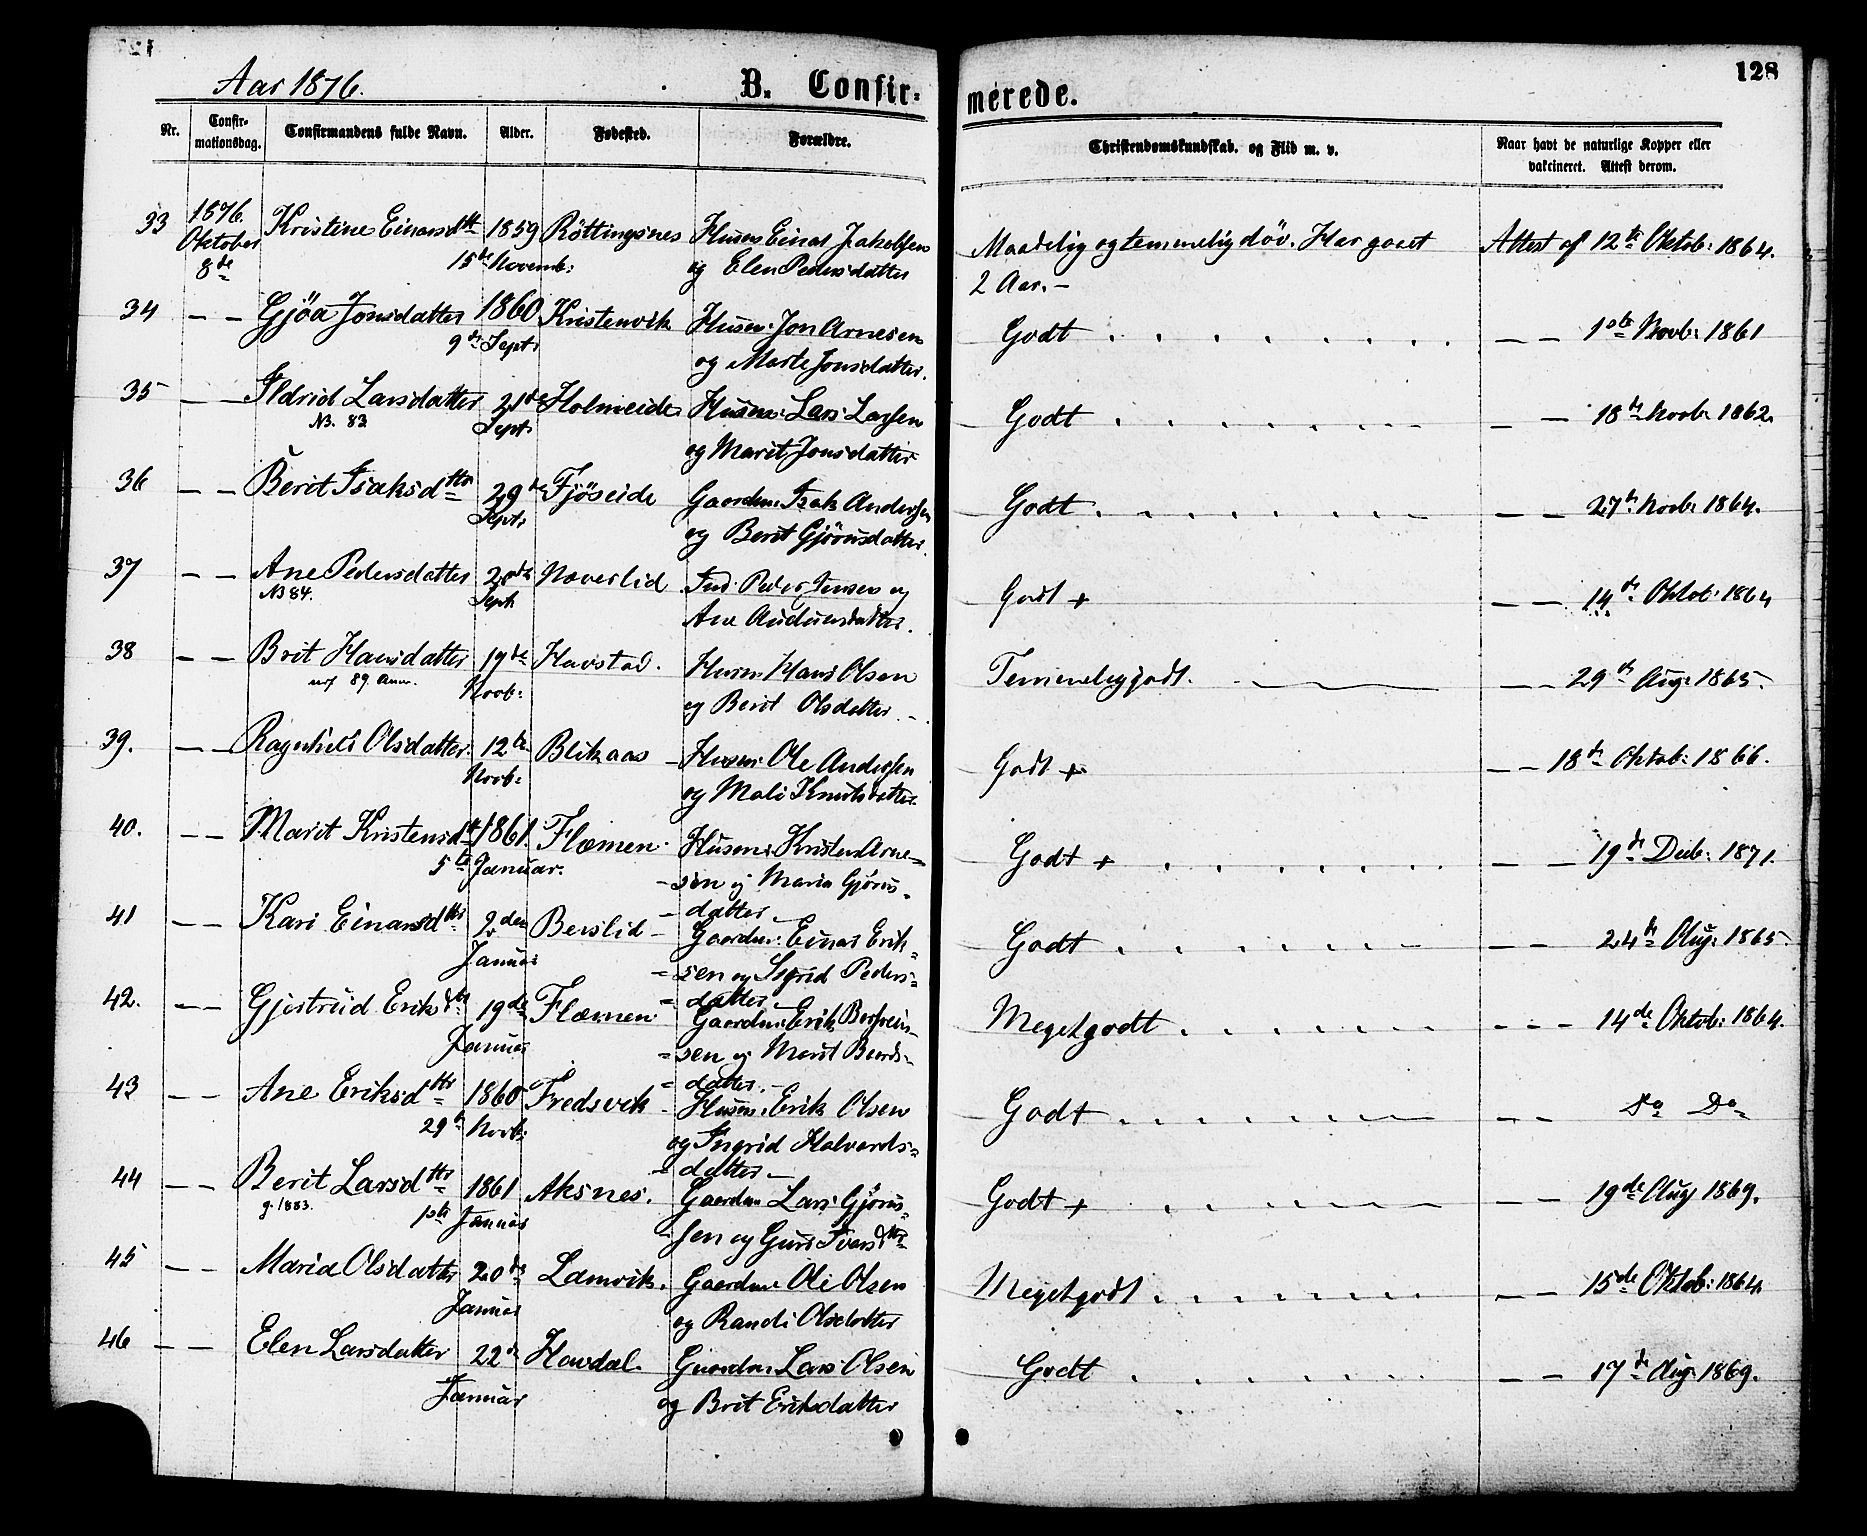 Aar 1876.
B. Confir- merede.
128
Nr.
Confirmationsdag.
Confirmandens fulde Navn.
Alder.
Fødested.
Forældre.
Christendomskundskab. og Flid m. v.
Naar havt de naturlige Kopper eller
vakcineret. Attest derom.
33 1876. Oktober 8de Kristine Einarsdtt 1859 15de Novemb: Röttingsnes Husm Einar Jakobsen
og Elen Pedersdatter
Maadelig og temmelig döv. Har gaaet
2 Aar. –
Attest af 12te Oktob: 1864.
34 – – Gjöa Jonsdatter 1860 9de Septr Kristenvik Husm: Jon Arnesen
og Marte Jonsdatter.
Godt – – 1ste Novb: 1861
35 – – Ildrid Larsdatter 21de Septr Holmeide Husm: Lars Larsen
NB. 83 og Marit Jonsdatter
Godt – – 18de Novb: 1862.
36 – – Berit Isaksdttr 29de Septr Fjöseide Gaardm: Isak Andersen
og Berit Gjörusdatter.
Godt – – 27de Novb: 1864.
37 – – Ane Pedersdatter Septr Næverlid Ind: Peder Jensen og
NB 84. Ane Audunsdatter.
Godt + – – 14de Oktob: 1864
38 – – Brit Hansdatter 19de Novb: Havstad. Husm: Hans Olsen
89. og Berit Olsdatter. –
Temmelig godt. – – 29de Aug: 1865.
39. – – Ragnhild Olsdatter. 12te Novb: Blikaas – Husm: Ole Andersen
og Mali Knutsdatter.
Godt + – – 18de Oktob: 1866.
40. – – Marit Kristensdt 1861. 5te Januar. Flæmen. Husm: Kristen Arne-
sen og Maria Gjörus-
datter –
Godt + – – 19de Decb: 1871.
41 – – Kari Einarsdttr 2den Januar Berslid – Gaardm: Einar Erik-
sen og Sigrid Peders-
datter –
Godt – – 24de Aug: 1865.
42. – – Gjertrud Eriksdtr. 19de Januar Flæmen. Gaardm: Erik
sen og Marit Baards-
datter. –
Meget godt – – – 14de Oktob: 1864.
43 – – Ane Eriksdttr 1860 29de Novb: Fredsvik – Husm: Erik Olsen
og Ingrid Halvards-
datter –
Godt – – Do Do
44 – – Berit Larsdttr 1861 1ste Januar Aksnes. Gaardm Lars Gjörus-
g. 1883. sen og Guri Ivarsdttr
Godt + – – 19de Aug 1869.
45 – – Maria Olsdatter 20de Januar Lamvik. Gaardm Ole Olsen
og Randi Olsdatter
Meget godt – – 15de Oktob: 1864.
46 – – Elen Larsdatter 22de Januar Havdal. Gaardm: Lars Olsen
og Brit Eriksdatter
Godt – – 17de Aug: 1869.